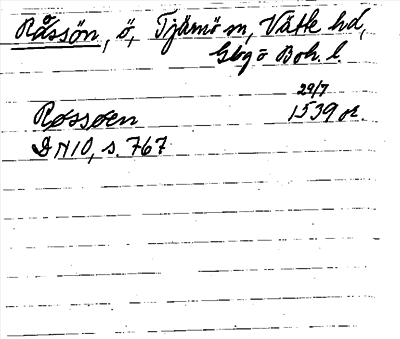 Råssön, ö, Tjärnö sn, Vätte hd,
Gbg o Boh. l.
29/7
Røssøen 1539 or.
DN 10, s. 767